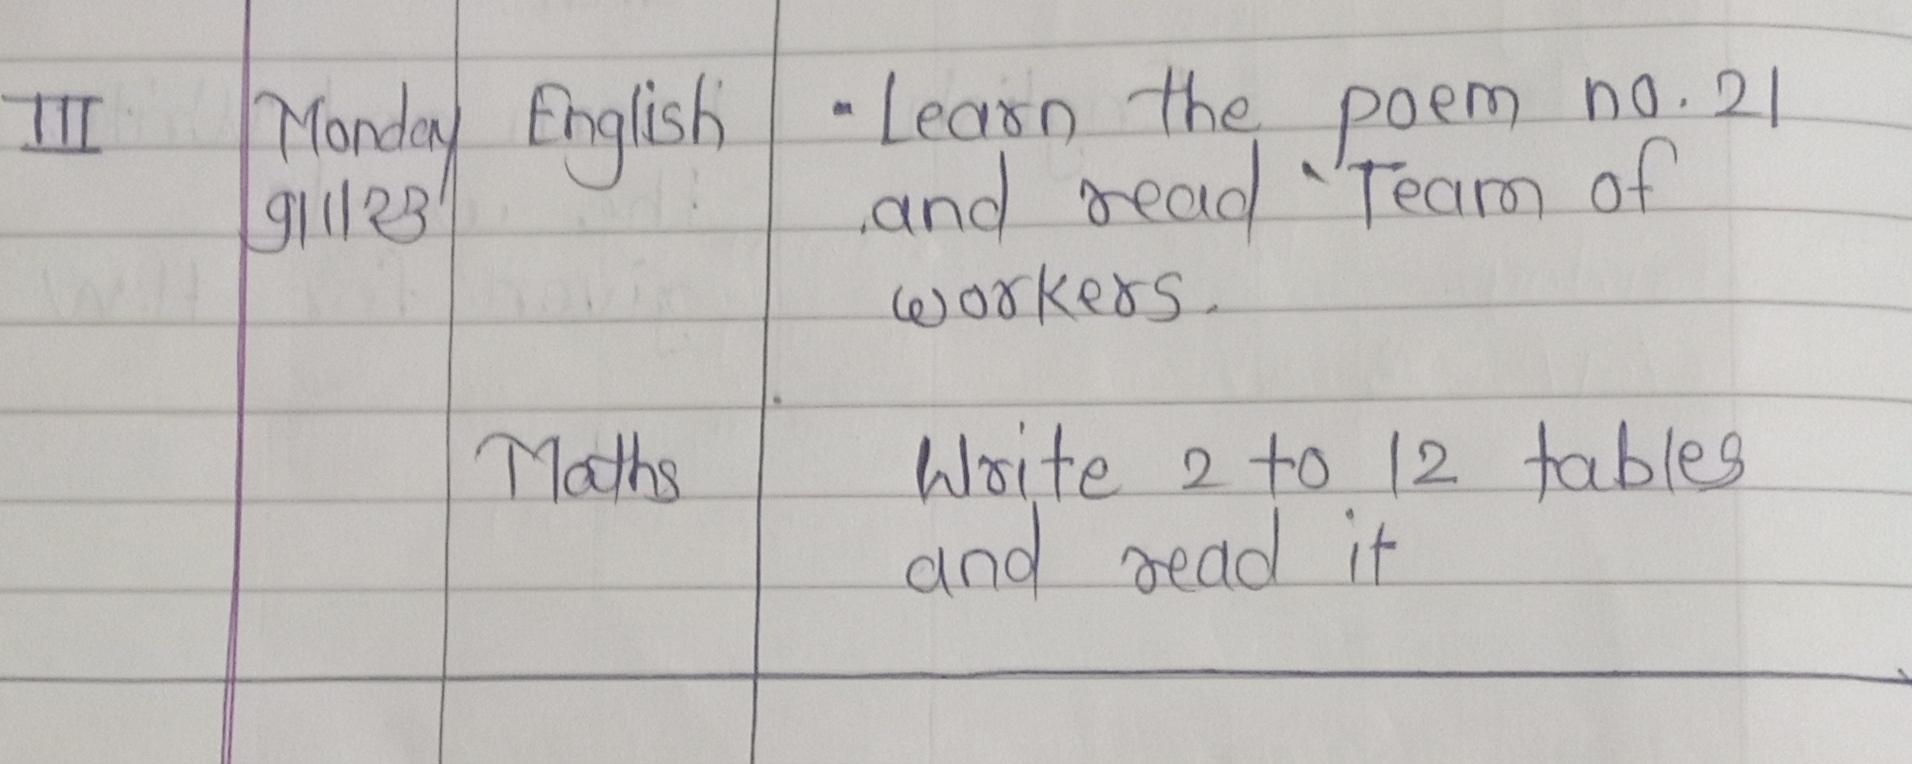 III Monday English - Learn the poem no. 21
9/1/23 and read "Team of
workers.
Maths Write 2 to 12 tables
and read it